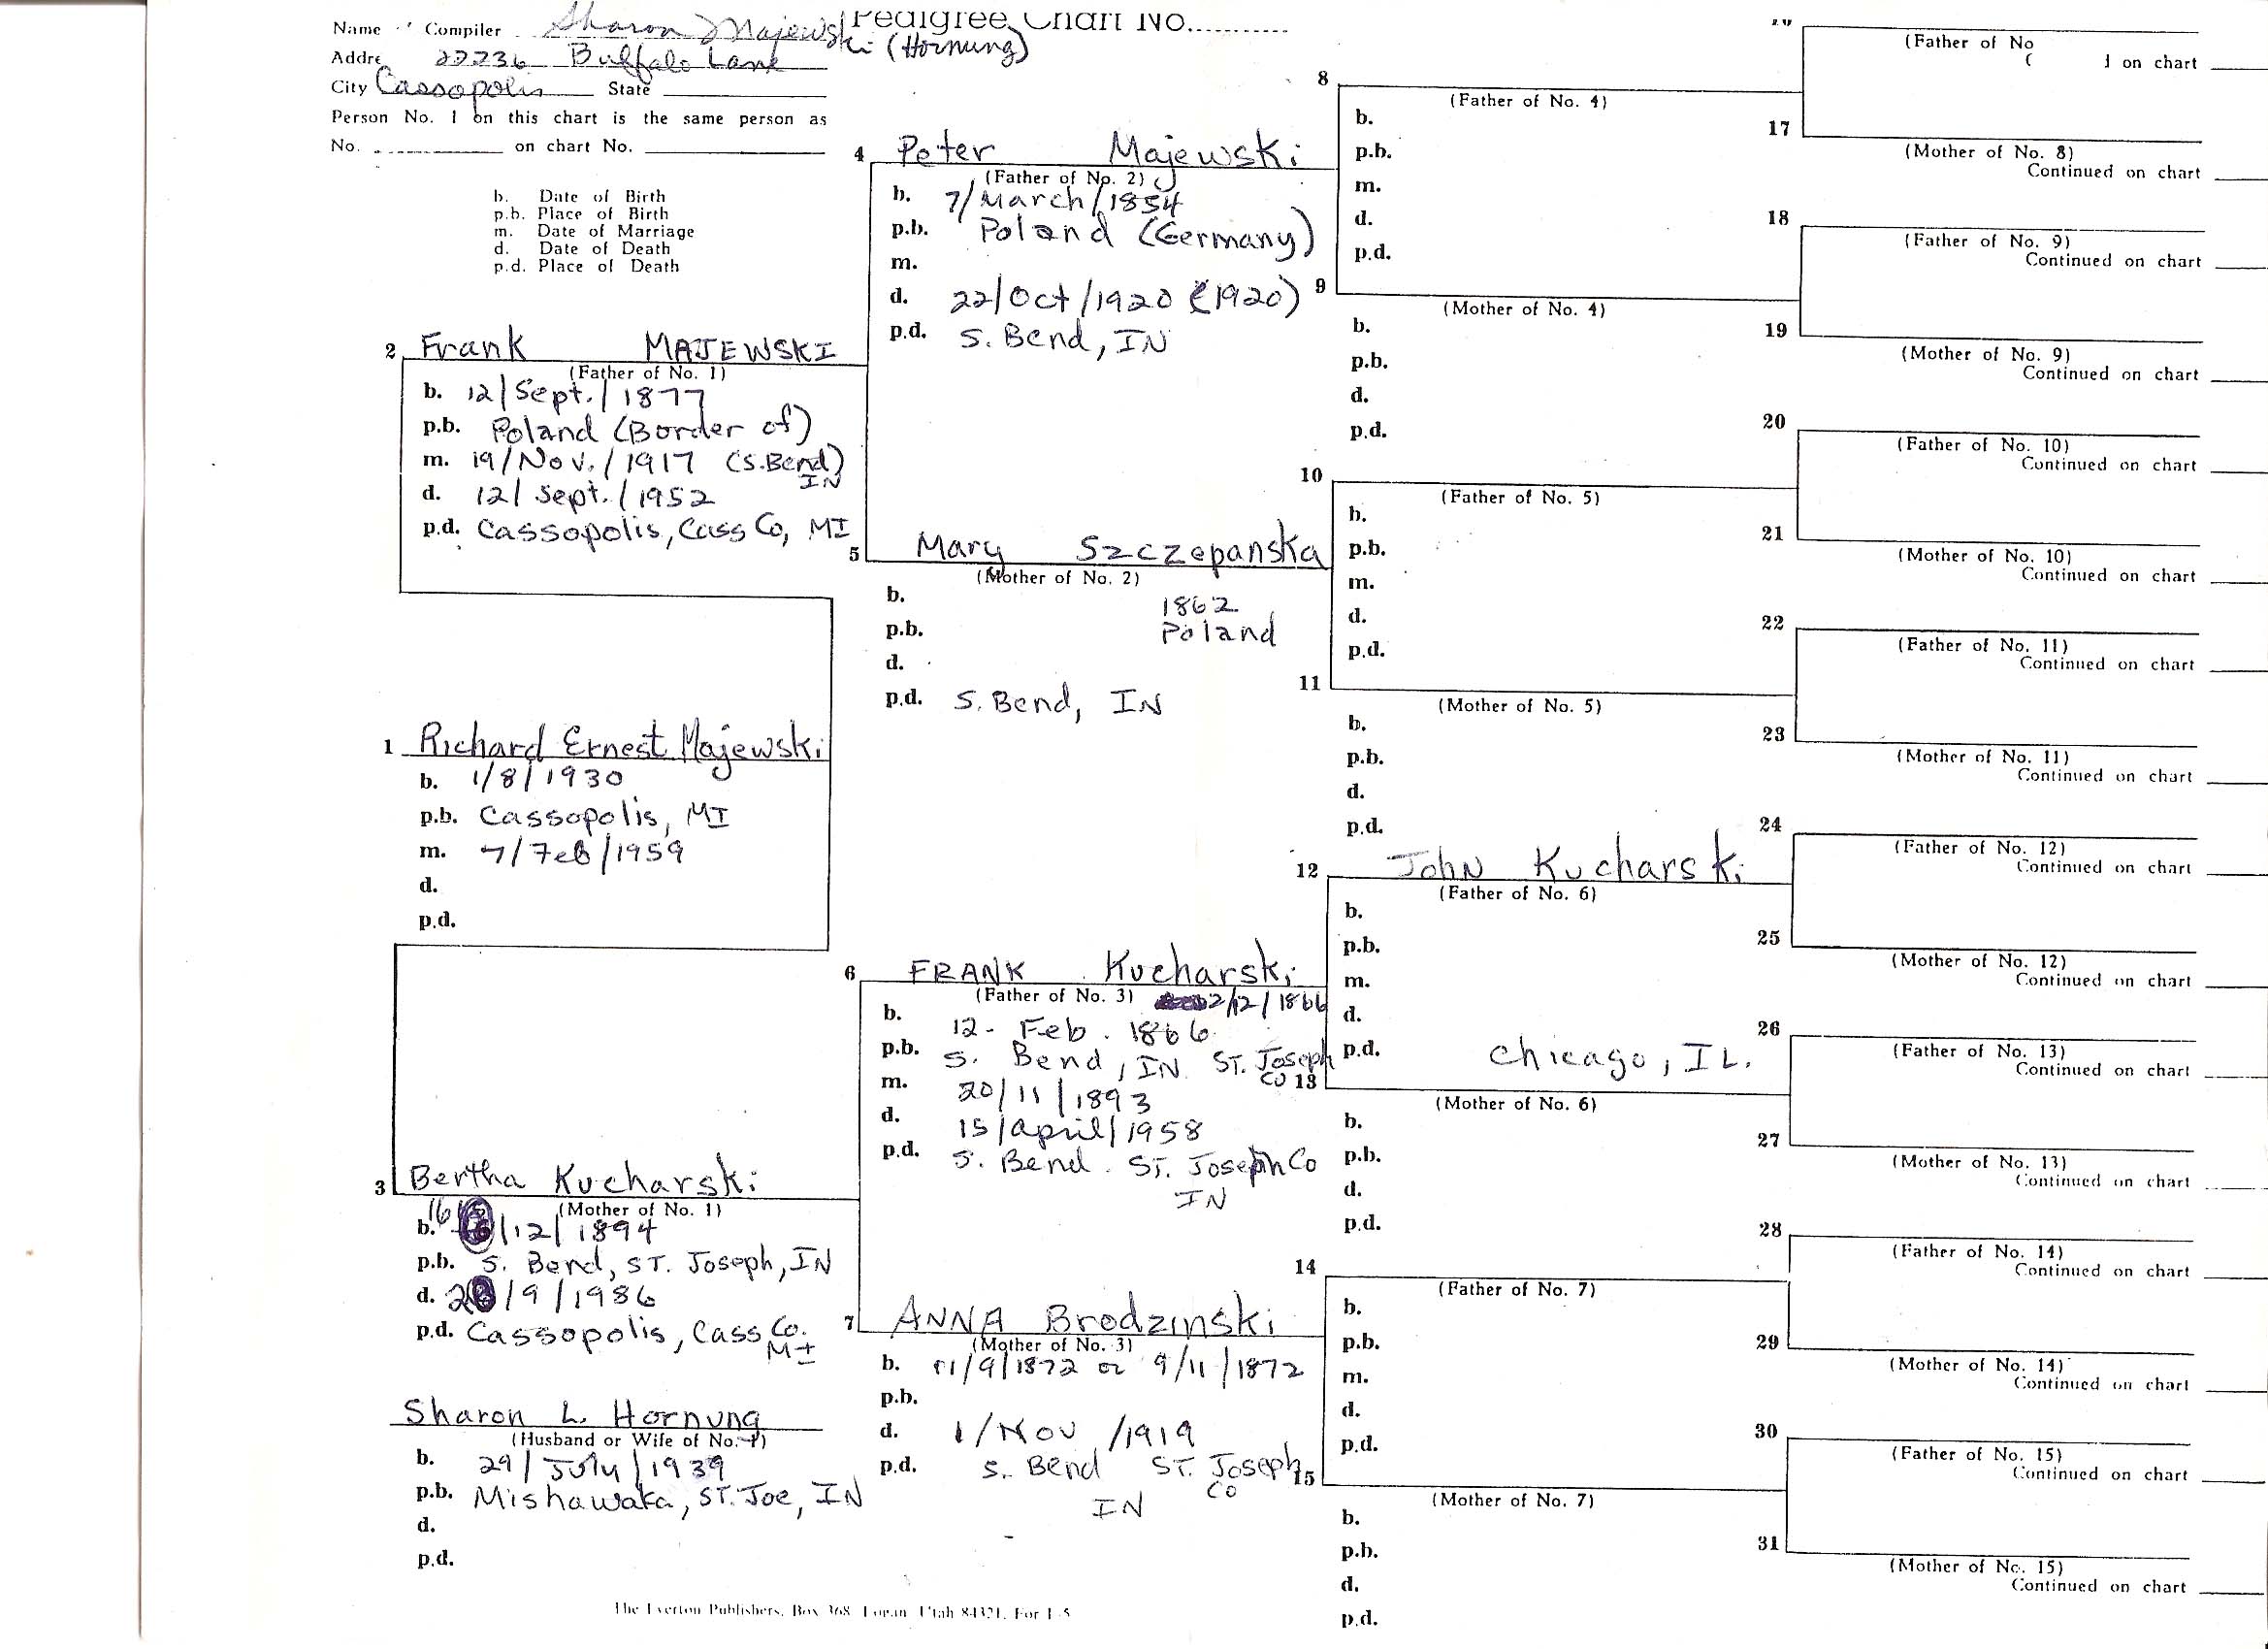 Pedigree Chart No. ............
Name Compiler Sharon Majewski (Hornung)
Addre 22736 Buffalo Lane
City Cassopolis State
Person No. 1 on this chart is the same person as
No. on chart No.
b. Date of Birth
p.b. Place of Birth
m. Date of Marriage
d. Date of Death
p.d. Place of Death
1 Richard Ernest Majewski
b. 1/8/1930
p.b. Cassopolis, MI
m. 7/Feb/1959
d.
p.d.
2 Frank MAJEWSKI
(Father of No. 1)
b. 12/Sept./1877
p.b. Poland (Border of)
m. 19/Nov./1917 (S.Bend) IN
d. 12/Sept./1952
p.d. Cassopolis, Cass Co, MI
3 Bertha Kucharski
(Mother of No. 1)
b. 16/12/1894
p.b. S. Bend, ST. Joseph, IN
d. /9/1986
p.d. Cassopolis, Cass Co. MI
Sharon L. Hornung
(Husband or Wife of No. 1)
b. 29/July/1939
p.b. Mishawaka, ST. Joe, IN
d.
p.d.
4 Peter Majewski
(Father of No. 2)
b. 7/March/1854
p.b. Poland (Germany)
m.
d. 22/Oct/1920 (1920)
p.d. S. Bend, IN
5 Mary Szczepanska
(Mother of No. 2)
b. 1862
p.b. Poland
d.
p.d. S. Bend, IN
6 FRANK Kucharski
(Father of No. 3) 2/12/1866
b. 12 - Feb. 1866
p.b. S. Bend, IN. ST. Joseph CO
m. 20/11/1893
d. 15/april/1958
p.d. S. Bend. ST. Joseph Co
IN
7 ANNA Brodzinski
(Mother of No. 3)
b. 11/9/1872 or 9/11/1872
p.b.
d. 1/Nov/1919
p.d. S. Bend ST. Joseph CO
IN
8
(Father of No. 4)
b.
p.b.
m.
d.
p.d.
9
(Mother of No. 4)
b.
p.b.
d.
p.d.
10
(Father of No. 5)
b.
p.b.
m.
d.
p.d.
11
(Mother of No. 5)
b.
p.b.
d.
p.d.
12 John Kucharski
(Father of No. 6)
b.
p.b.
m.
d.
p.d. Chicago, IL.
13
(Mother of No. 6)
b.
p.b.
d.
p.d.
14
(Father of No. 7)
b.
p.b.
m.
d.
p.d.
15
(Mother of No. 7)
b.
p.b.
d.
p.d.
(Father of No
on chart
17
(Mother of No. 8)
Continued on chart
18
(Father of No. 9)
Continued on chart
19
(Mother of No. 9)
Continued on chart
20
(Father of No. 10)
Continued on chart
21
(Mother of No. 10)
Continued on chart
22
(Father of No. 11)
Continued on chart
23
(Mother of No. 11)
Continued on chart
24
(Father of No. 12)
Continued on chart
25
(Mother of No. 12)
Continued on chart
26
(Father of No. 13)
Continued on chart
27
(Mother of No. 13)
Continued on chart
28
(Father of No. 14)
Continued on chart
29
(Mother of No. 14)
Continued on chart
30
(Father of No. 15)
Continued on chart
31
(Mother of No. 15)
Continued on chart
The Everton Publishers, Box 368 Logan Utah 84321,